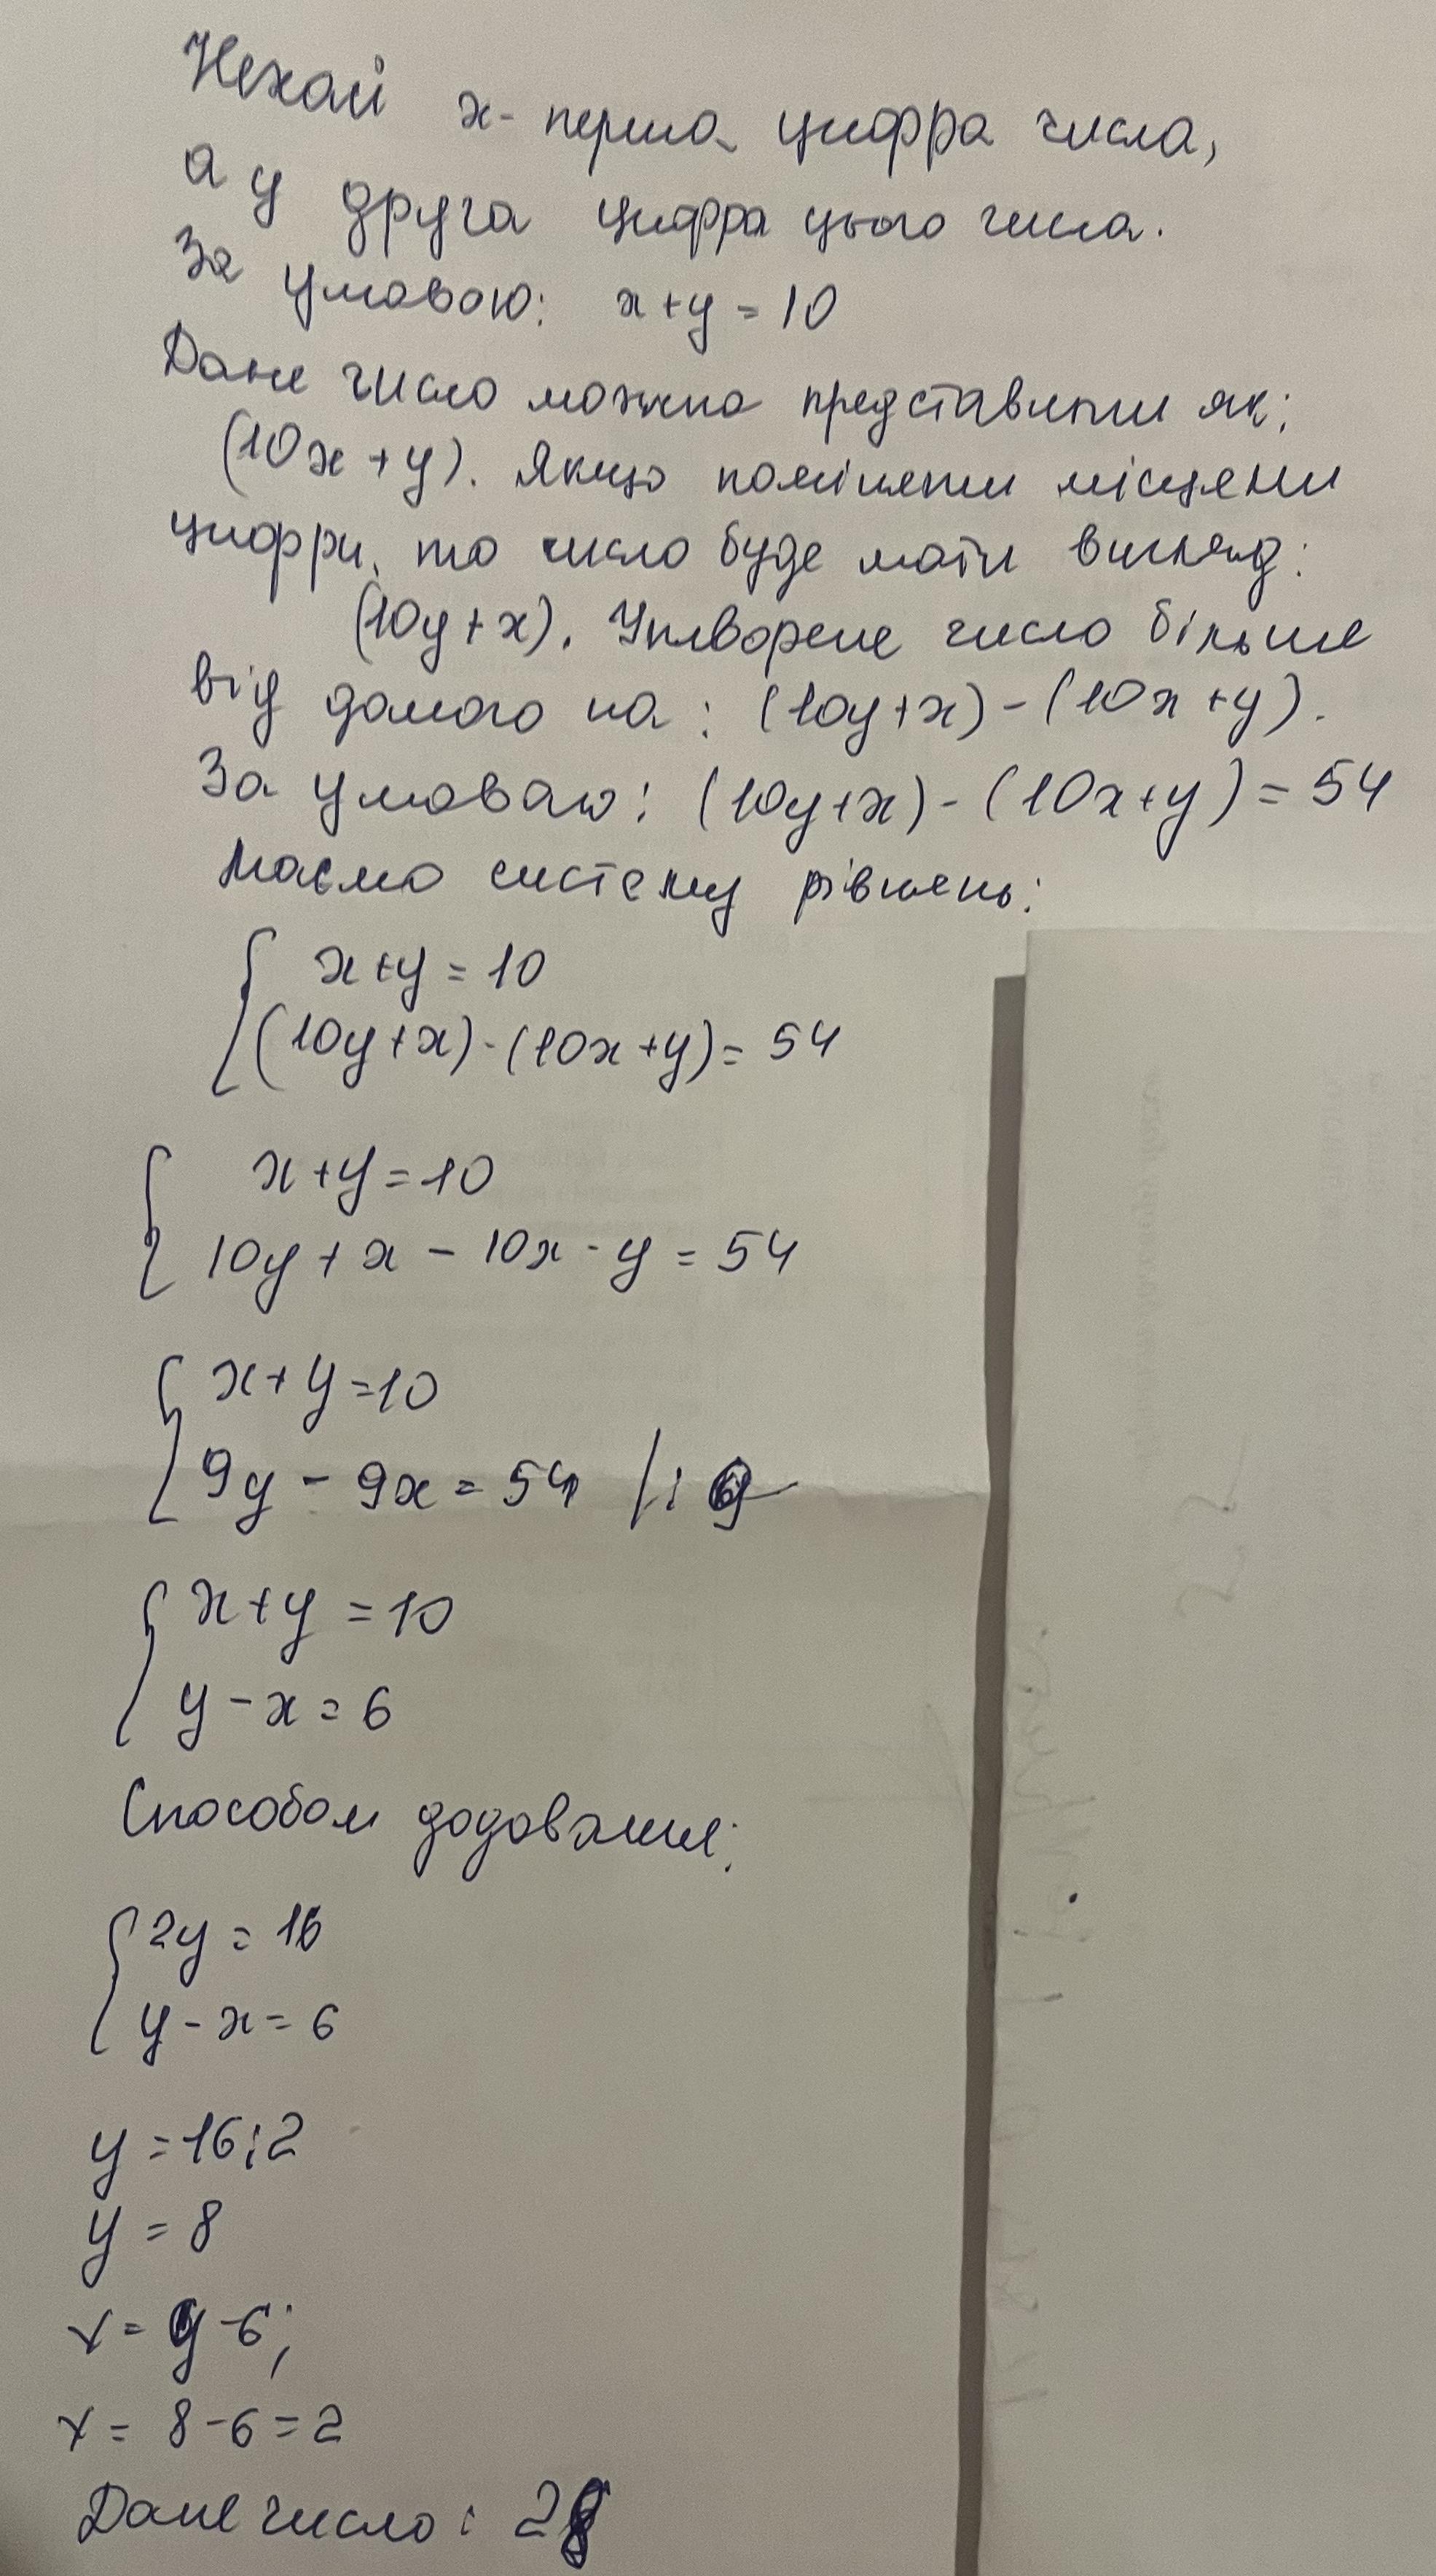 Нехай х- перша цифра числа,
а у друга цифра цього числа.
За умовою: х+у=10
Дане число можна представити як:
(10х+у). Якщо поміняти місцями
цифри, то число буде мати вигляд:
(10у+х). Утворене число більше
від даного на: (10у+х)-(10х+у).
За умовою: (10у+х)-(10х+у)=54
Маємо систему рівнянь:
х+у=10
(10у+х)-(10х+у)=54
х+у=10
10у+х-10х-у=54
х+у=10
9у-9х=54 /:9
х+у=10
у-х=6
Способом додавання:
2у=16
у-х=6
у=16:2
у=8
х=у-6;
х=8-6=2
Дане число: 28